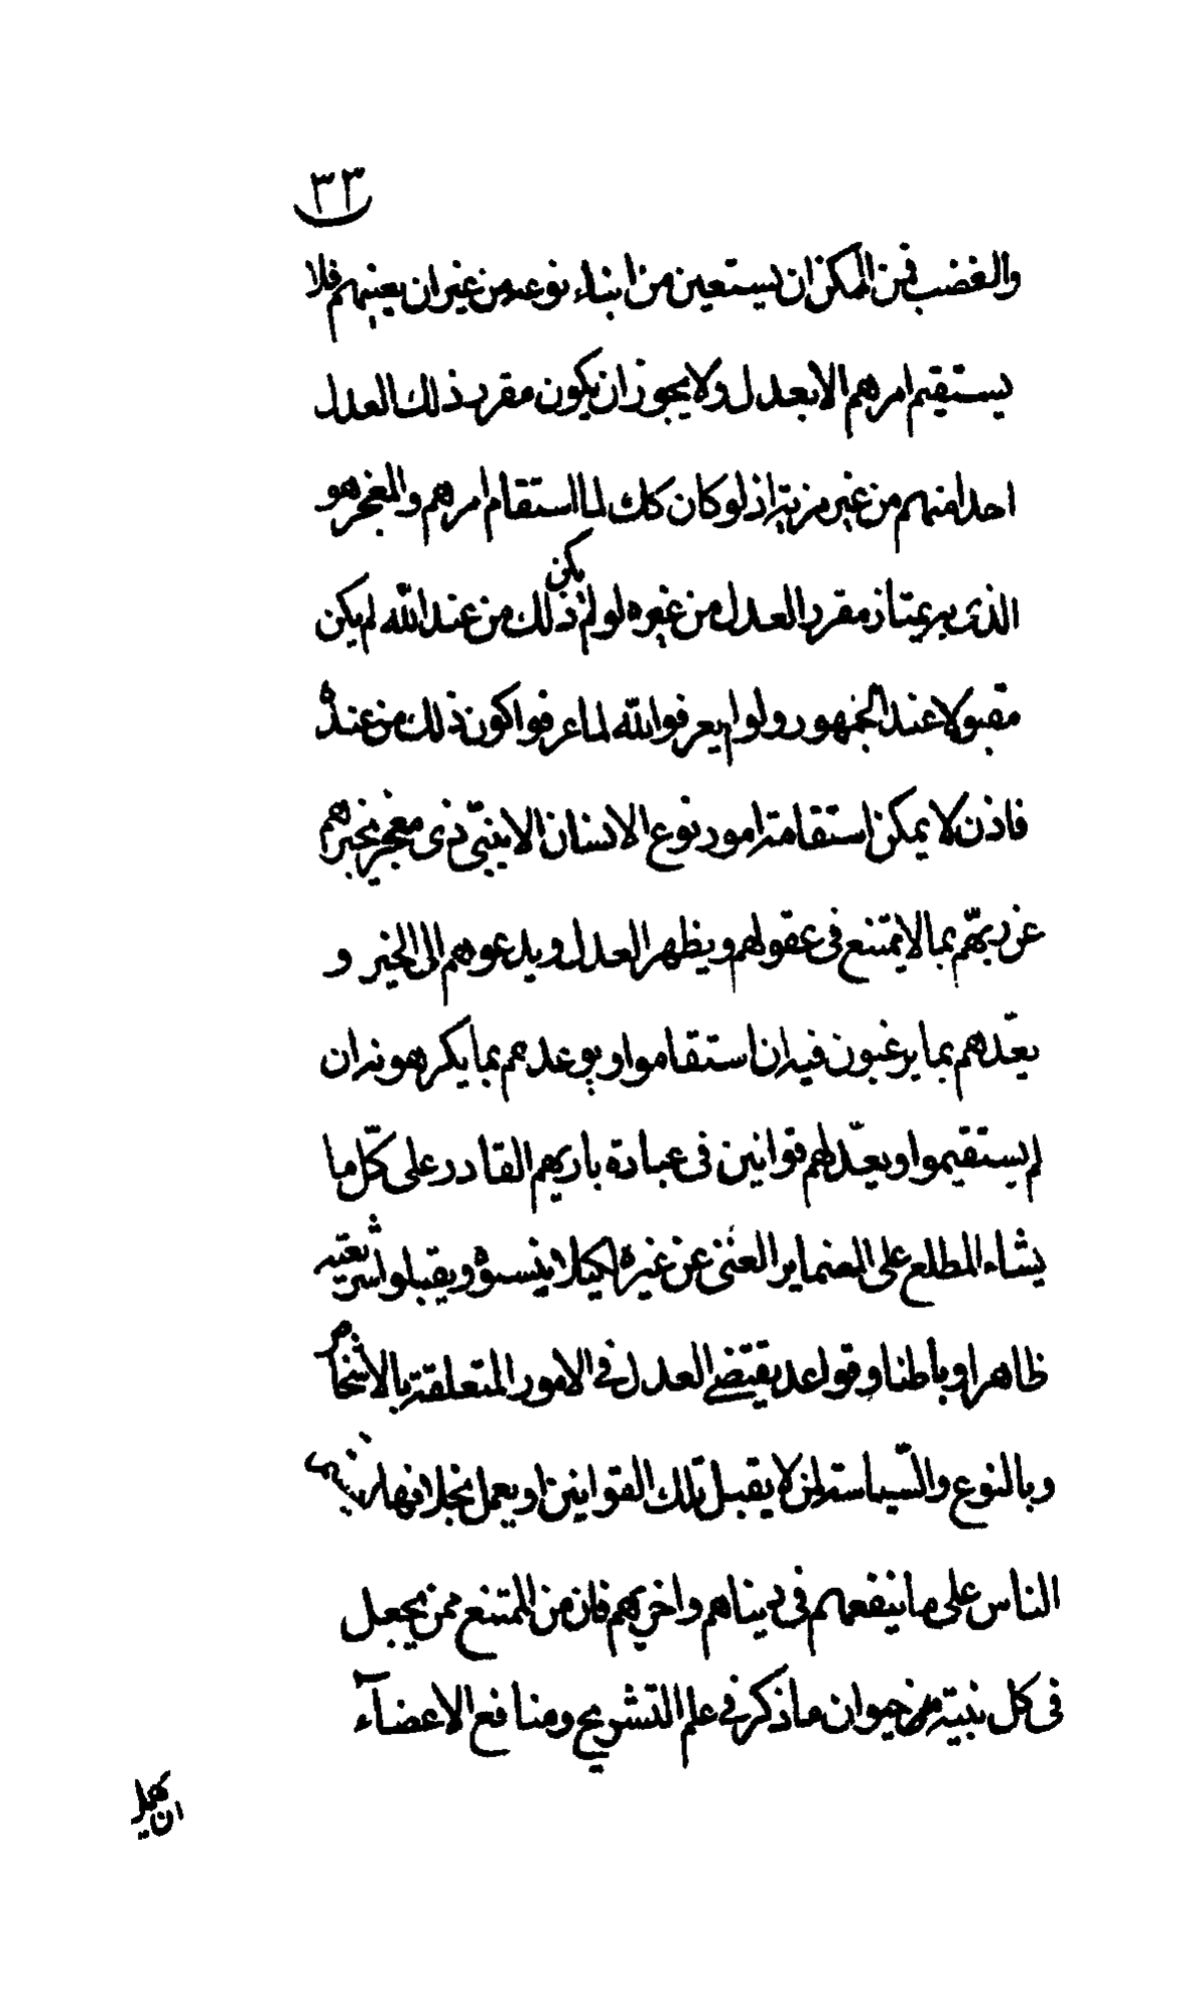 ٣٣
والغضب فمن الممكن ان يستعين من ابناء نوعه من غير ان يعينهم فلا
يستقيم امرهم الا بعدل ولا يجوز ان يكون مقرر ذلك العدل
احدا منهم من غير مزية اذ لو كان كك لما استقام امرهم والمعجز هو
الذى به يمتاز مقرر العدل من غيره لو لم يكن ذلك من عند الله لم يكن
مقبولا عند الجمهور ولو لم يعرفوا الله لما عرفوا كون ذلك من عنده
فاذن لا يمكن استقامة امور نوع الانسان الا بنبىّ ذى معجز يخبرهم
عن ربّهم بما لا يمتنع فى عقولهم ويظهر العدل ويدعوهم الى الخير و
يعّدهم بما يرغبون فيه ان استقاموا ويوعدهم بما يكرهونه ان
لم يستقيموا ويعّد لهم قوانين فى عبادة باريهم القادر على كّل ما
يشاء المطلع على الضماير الغنى عن غيره لكيلا ينسوه ويقبلوا شريعته
ظاهرا وباطنا وقواعد يقتضى العدل فى الامور المتعلقة بالاشخاص
وبالنوع والسّياسة لمن لا يقبل تلك القوانين او يعمل بخلافها
الناس على ما ينفعهم فى دنياهم واخريهم فان من الممتنع ممن يجعل
فى كل بنية من حيوان ما ذكر فى علم التشريح ومنافع الاعضآء
ان يهمل